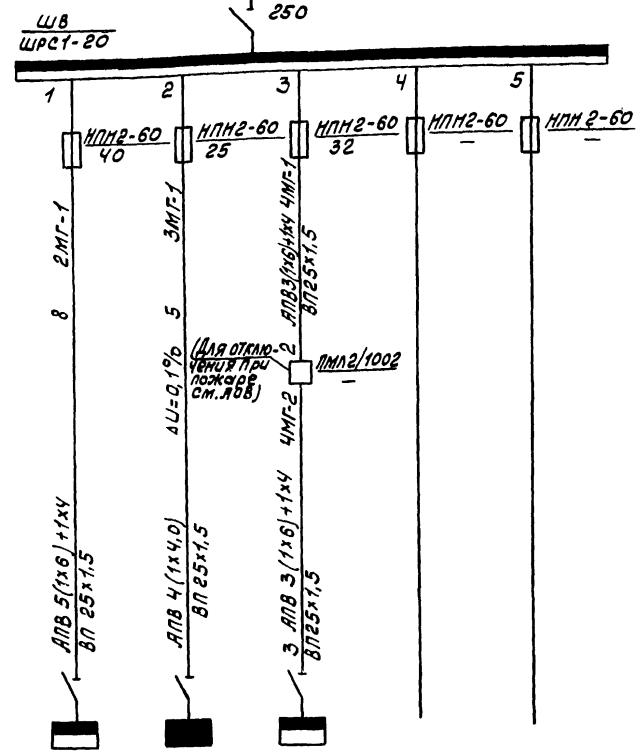 250
ШВ
ШРС1-20
1
2
3
4
5
НПН2-60
40
НПН2-60
25
НПН2-60
32
НПН2-60
—
НПН2-60
—
2МГ-1
8
АПВ 5(1х6)+1х4
ВП 25х1,5
3МГ-1
5
ΔU=0,1%
АПВ 4(1х4,0)
ВП 25х1,5
4МГ-1
АПВ3(1х6)+1х4
ВП25х1,5
2
(Для отклю-
чения при
пожаре
см. АОВ)
ПМЛ2/1002
—
4МГ-2
3 АПВ 3(1х6)+1х4
ВП25х1,5